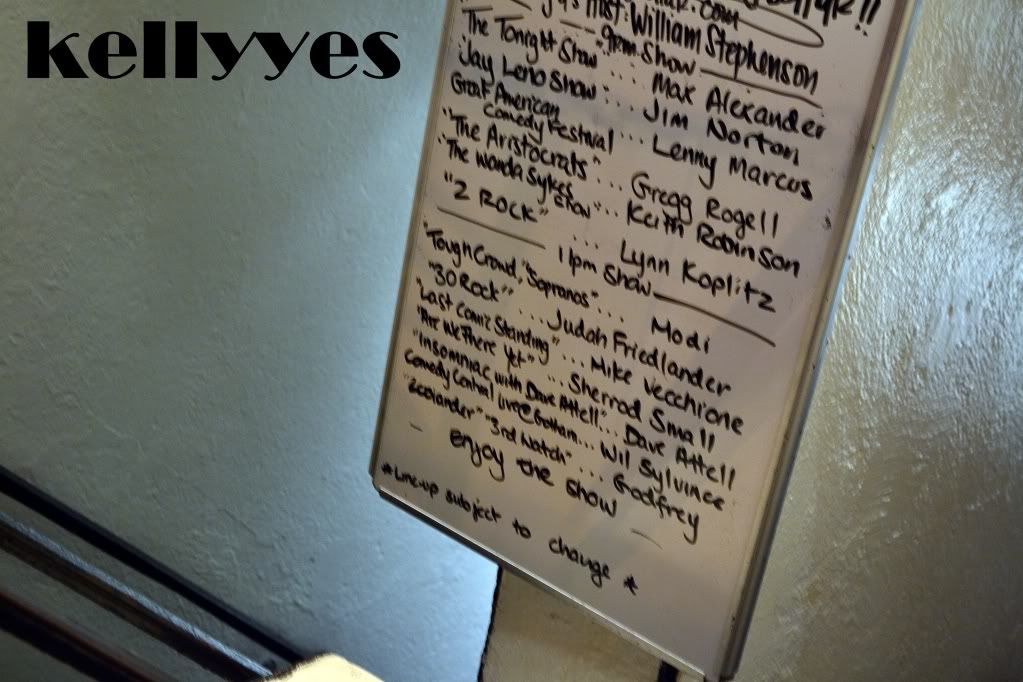 kellyyes
Host: William Stephenson
9pm Show
"The Tonight Show" ... Max Alexander
Jay Leno Show ... Jim Norton
Great American Comedy Festival ... Lenny Marcus
"The Aristocrats" ... Gregg Rogell
"The Wanda Sykes Show" .. Keith Robinson
"Z ROCK" ... Lynn Koplitz
11pm Show
"Tough Crowd," "Sopranos" ... Modi
"30 Rock" ... Judah Friedlander
"Last Comic Standing" ... Mike Vecchione
"Are We There Yet" ... Sherrod Small
"Insomniac with Dave Attell" .. Dave Attell
Comedy Central Live @ Gotham... Wil Sylvince
"Zoolander" "3rd Watch" ... Godfrey
- enjoy the show -
*Line-up subject to change *